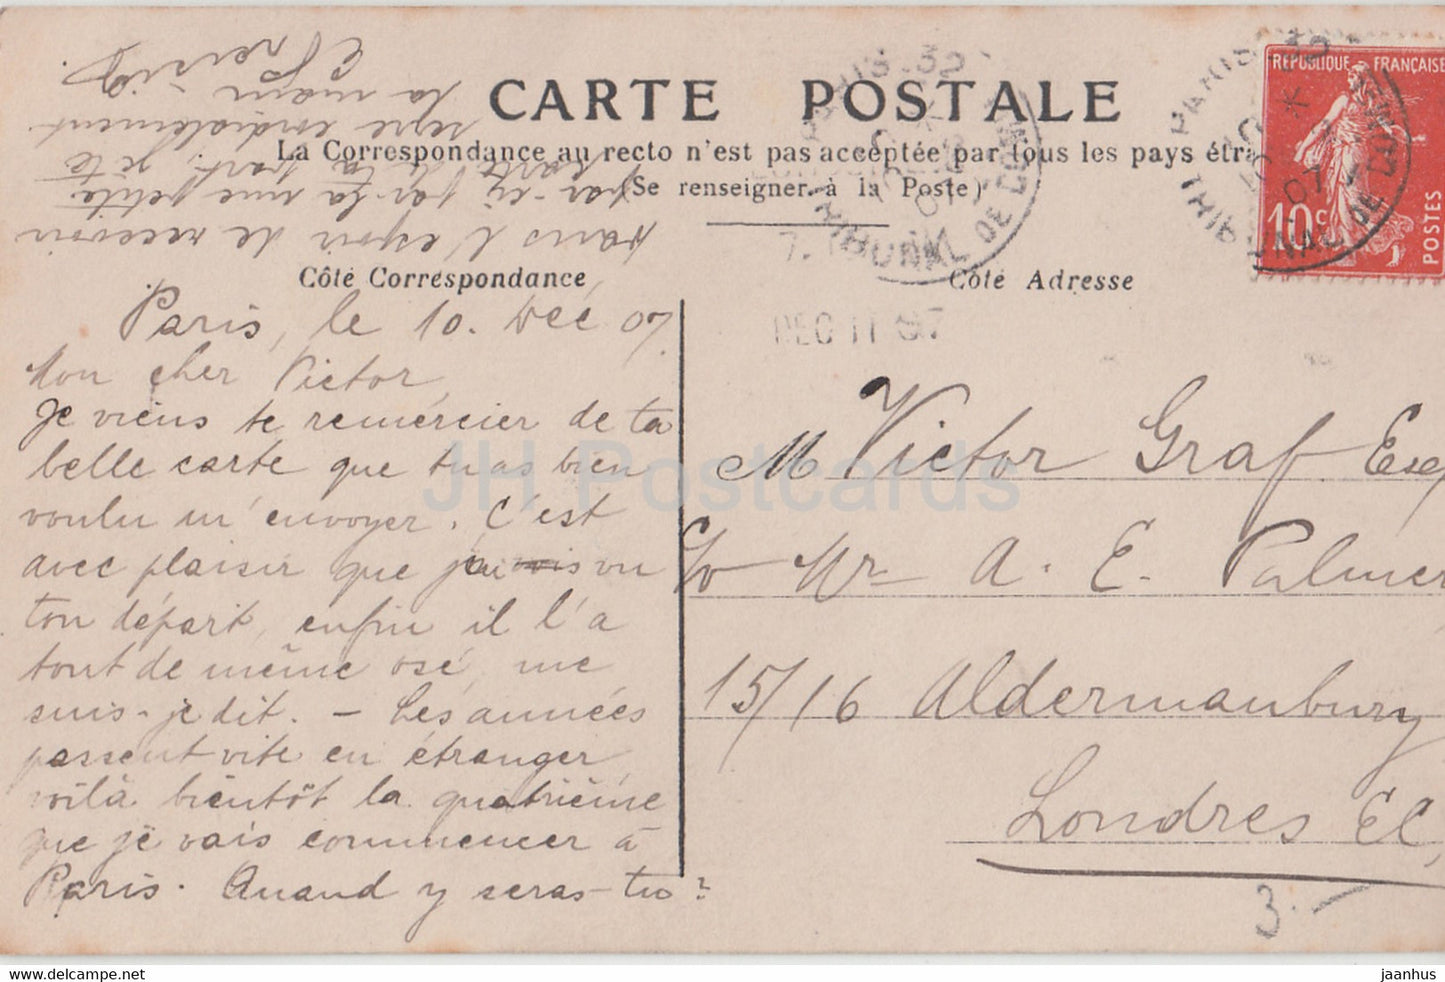 CARTE POSTALE
La Correspondance au recto n'est pas acceptée par tous les pays étra
(Se renseigner à la Poste)
Côté Correspondance
Côté Adresse
REPUBLIQUE FRANÇAISE
10c
POSTES
DEC 11 07
Paris, le 10. Déc 07
Mon cher Victor
Je viens te remercier de ta
belle carte que tu as bien
voulu m'envoyer. C'est
avec plaisir que j'ai vu
ton départ, enfin il l'a
tout de même osé, me
suis-je dit. – Les années
passent vite en étranger,
voilà bientôt la quatrième
que je vais commencer à
Paris. Quand y seras-tu?
Dans l'espoir de recevoir
par-ci par-là une petite
carte de ta part, je te
serre cordialement
la main
M Victor Graf Esq
c/o Mr A. E. Palmer
15/16 Aldermanbury
Londres EC,
3.-
JH Postcards
jaanhus